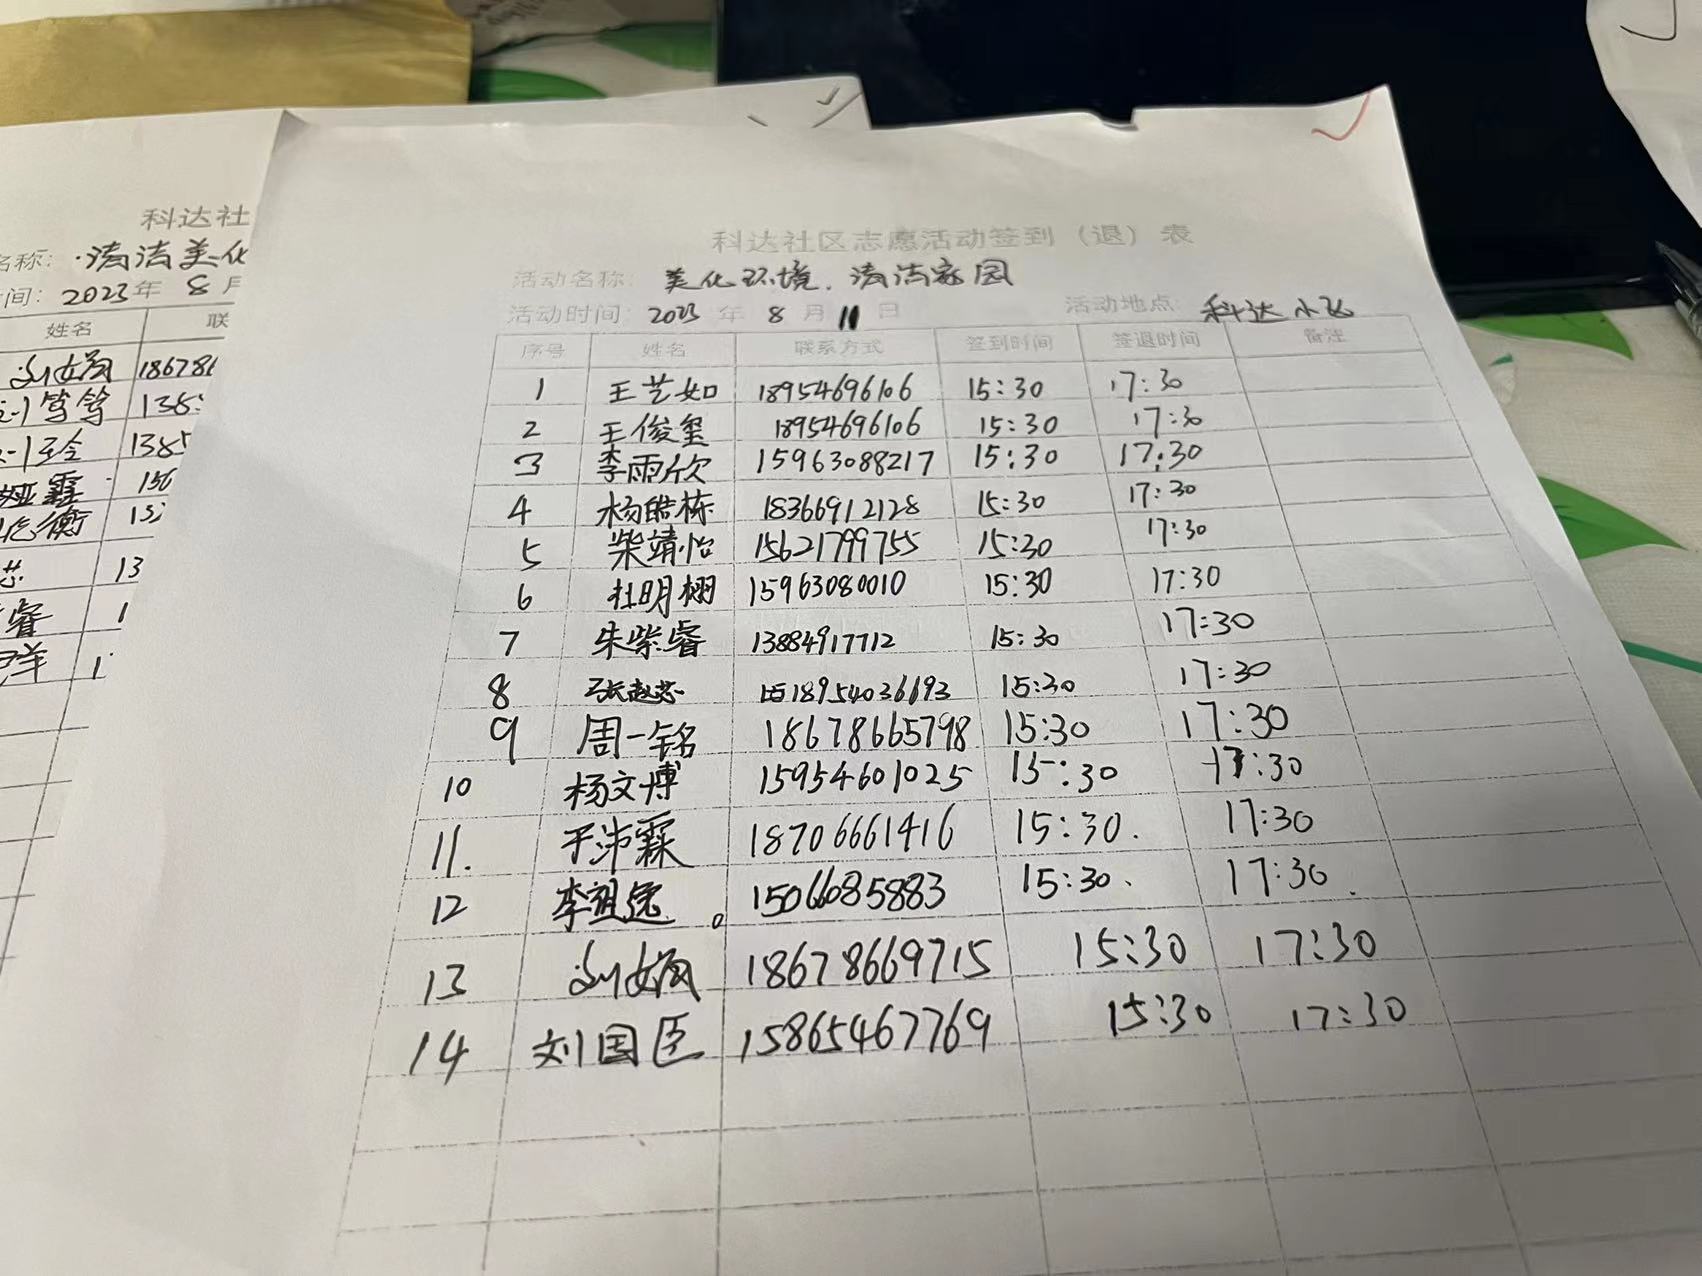 科达社区志愿活动签到（退）表
活动名称： 美化环境.清洁家园
活动时间：2023 年 8 月 11 日 活动地点：科达小区
序号 姓名 联系方式 签到时间 签退时间 备注
1 王艺如 18954696106 15:30 17:30
2 王俊玺 18954696106 15:30 17:30
3 李雨欣 15963088217 15:30 17:30
4 杨皓栋 18366912128 15:30 17:30
5 柴靖怡 15621799755 15:30 17:30
6 杜明栩 15963080010 15:30 17:30
7 朱紫睿 13884917712 15:30 17:30
8 张赵芯 18954036693 15:30 17:30
9 周一铭 18678665798 15:30 17:30
10 杨文博 15954601025 15:30 17:30
11. 于沛霖 18706661416 15:30. 17:30
12 李祖 15066085883 15:30. 17:30.
13 刘娟 18678669715 15:30 17:30
14 刘国臣 15865467769 15:30 17:30
科达社
名称：清洁美化
时间：2023年 8月
姓名 联
刘娟 18678
笃笃 138
玲 1385
娅霏 156
衡 15
芯 13
睿 1
祥 1